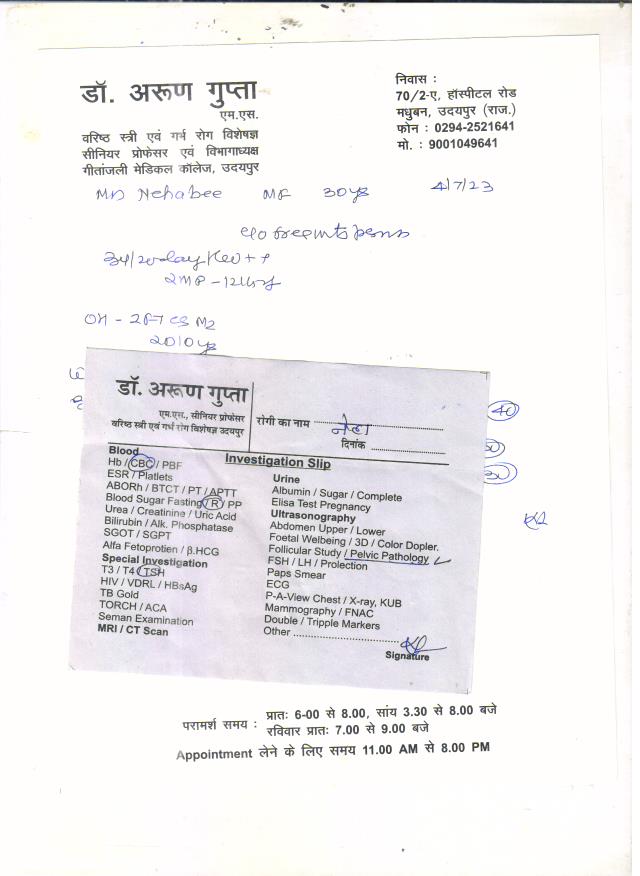 डॉ. अरूण गुप्ता
एम.एस.
वरिष्ठ स्त्री एवं गर्भ रोग विशेषज्ञ
सीनियर प्रोफेसर एवं विभागाध्यक्ष
गीतांजली मेडिकल कॉलेज, उदयपुर
निवास :
70/2-ए, हॉस्पीटल रोड
मधुबन, उदयपुर (राज.)
फोन : 0294-2521641
मो. : 9001049641
Nehabee MF 30 4/7/23
2010
डॉ. अरूण गुप्ता
एम.एस., सीनियर प्रोफेसर
वरिष्ठ स्त्री एवं गर्भ रोग विशेषज्ञ उदयपुर
रोगी का नाम नेहा
दिनांक
Investigation Slip
Blood
Hb / CBC / PBF
ESR / Platlets
ABORh / BTCT / PT / APTT
Blood Sugar Fasting / R / PP
Urea / Creatinine / Uric Acid
Bilirubin / Alk. Phosphatase
SGOT / SGPT
Alfa Fetoprotien / β.HCG
Special Investigation
T3 / T4 / TSH
HIV / VDRL / HBsAg
TB Gold
TORCH / ACA
Seman Examination
MRI / CT Scan
Urine
Albumin / Sugar / Complete
Elisa Test Pregnancy
Ultrasonography
Abdomen Upper / Lower
Foetal Welbeing / 3D / Color Dopler.
Follicular Study / Pelvic Pathology
FSH / LH / Prolection
Paps Smear
ECG
P-A-View Chest / X-ray, KUB
Mammography / FNAC
Double / Tripple Markers
Other
Signature
40
परामर्श समय : प्रातः 6-00 से 8.00, सांय 3.30 से 8.00 बजे
रविवार प्रातः 7.00 से 9.00 बजे
Appointment लेने के लिए समय 11.00 AM से 8.00 PM